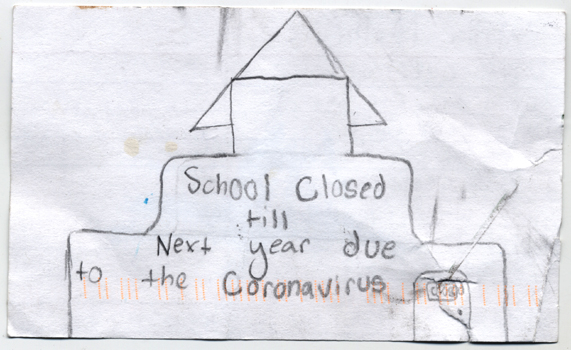 School Closed
till
Next year due
to the Coronavirus